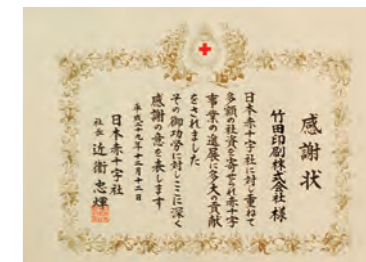 感謝状
竹田印刷株式会社様
日本赤十字社に対し重ねて
多額の社資を寄せられ赤十字
事業の進展に多大の貢献
をされました
その御功労に対しここに深く
感謝の意を表します
平成二十九年十二月十二日
日本赤十字社
社長 近衛忠煇